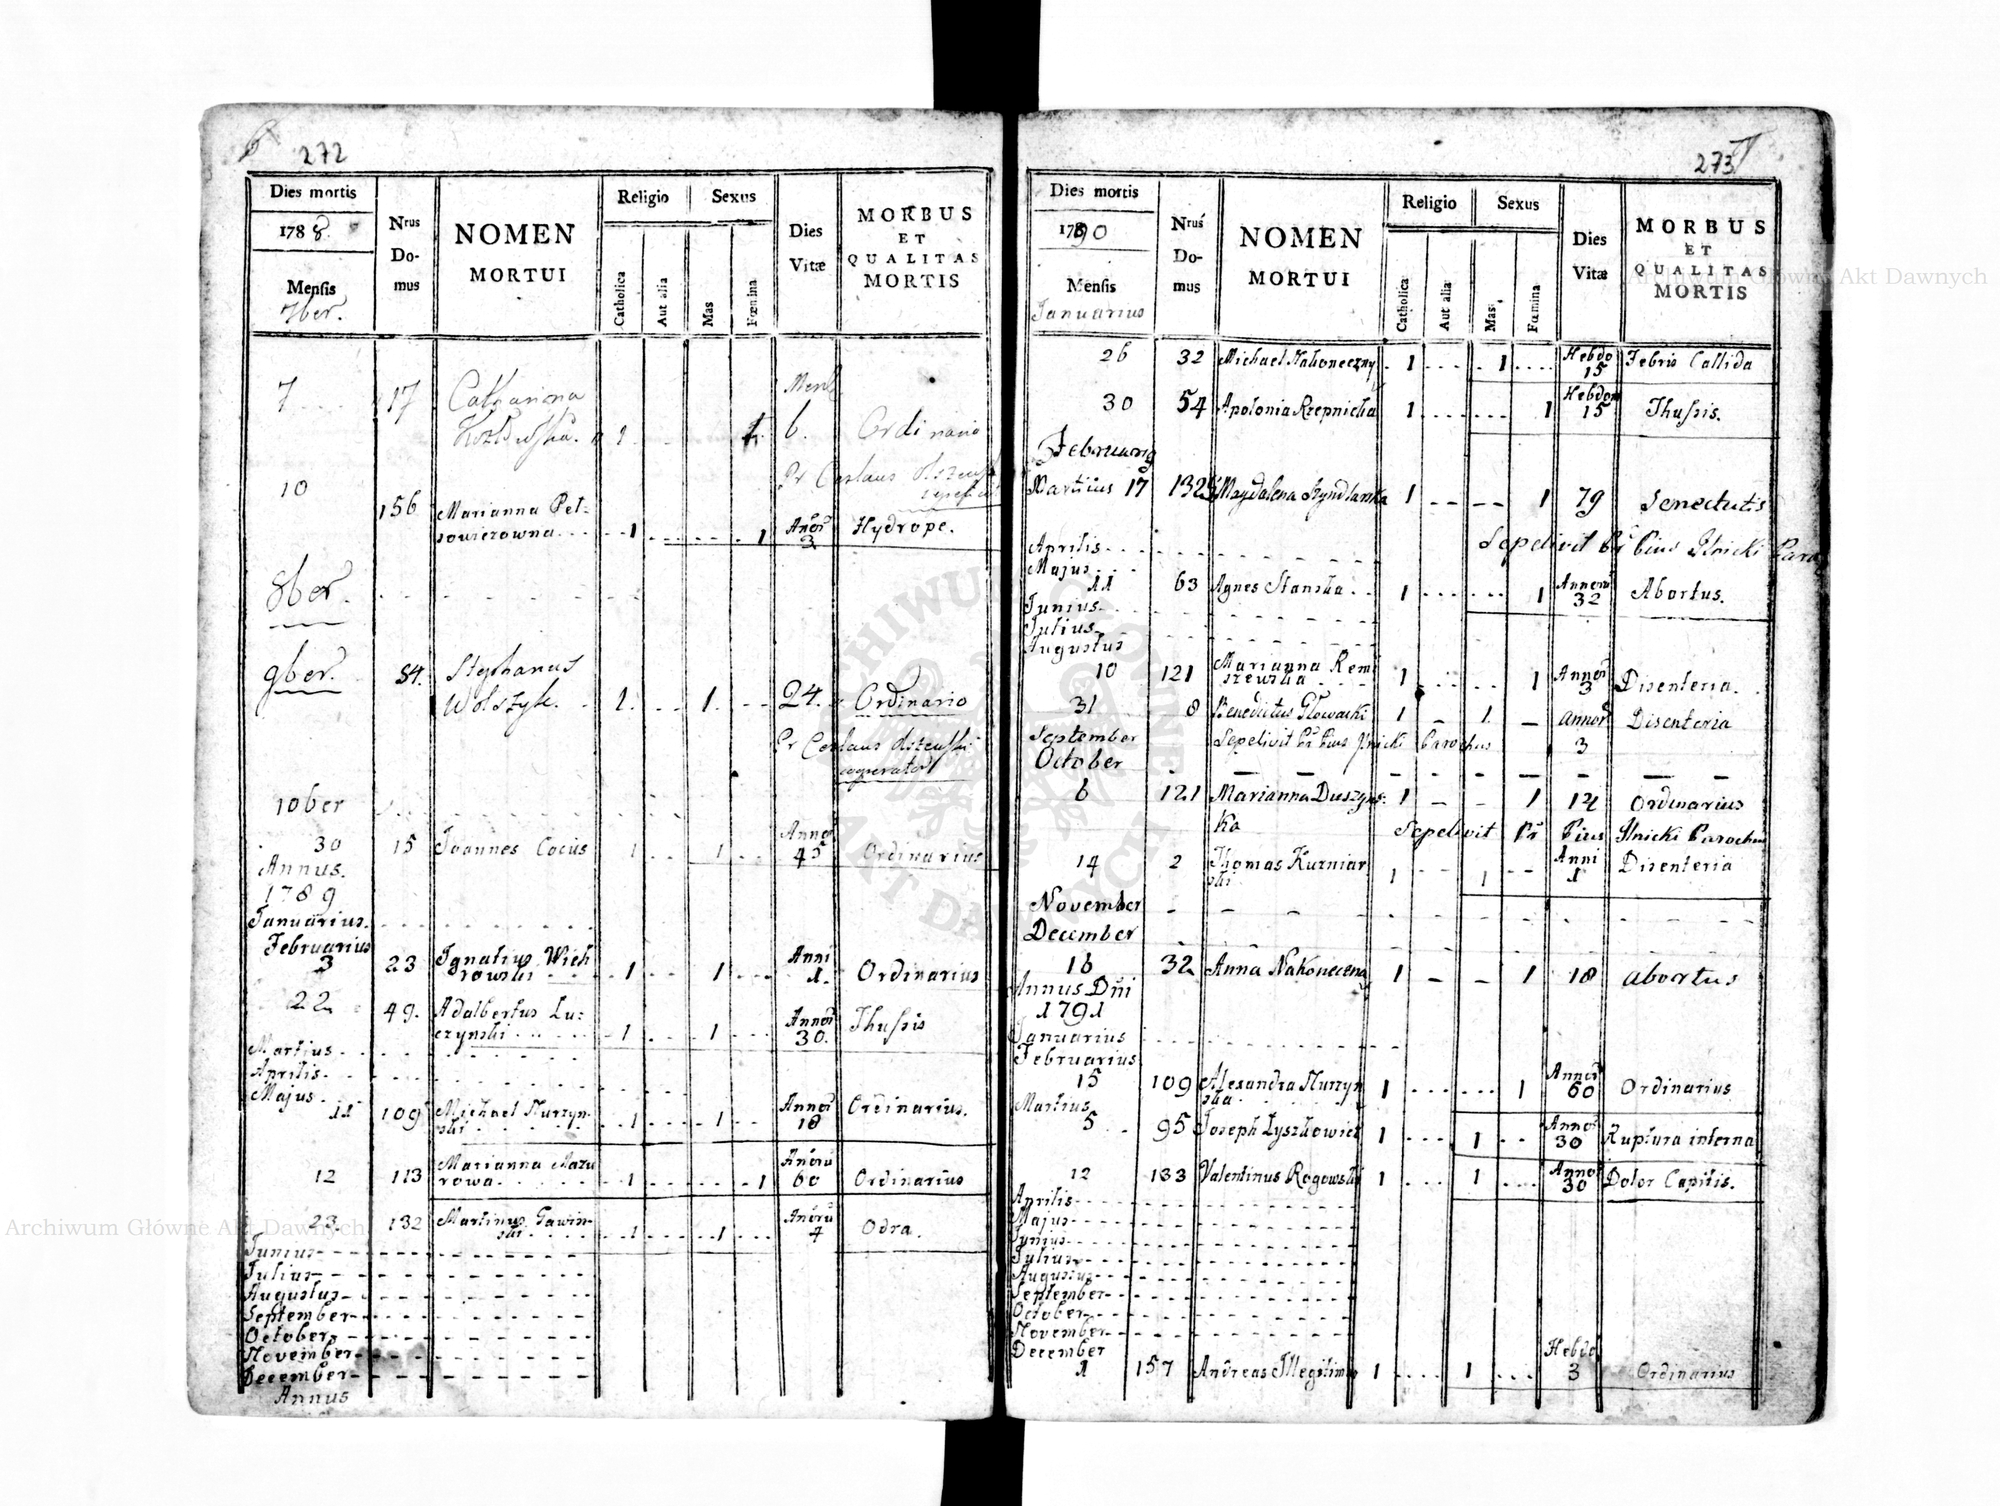 272
Dies mortis
1788.
Mensis
7ber.
Nrus Domus
NOMEN
MORTUI
Religio
Sexus
Catholica
Aut alia
Mas
Fœmina
Dies
Vitæ
MORBUS
ET
QUALITAS
MORTIS
7 17 Catharina
Kozłowska. 1 1. 6. Ordinaria
10
Pr Ceslaus
156 Marianna Pet-
rowiczowna 1 1 3 Hydrope.
8ber.
9ber. 84. Stephanus
Wolszyk. 1. 1. 24. Ordinario
Pr Ceslaus
cooperator
10ber
30 15 Joannes Cocus 1 1 Annor 45 Ordinarius
Annus.
1789
Januarius.
Februarius
3 23 Ignatius Wich
rowski 1 1 Anni 1. Ordinarius
22 49. Adalbertus Lu-
czynski 1 1 Annor 30. Thussis
Martius
Aprilis
Majus
11 109 Michael Murzyn
ski 1 1 Annor 18 Ordinarius.
12 113 Marianna Mazu
rowa 1 1 60 Ordinarius
23 132 Martinus Gawin
ski 1 1 4 Odra.
Junius
Julius
Augustus
September
October
November
December
Annus
273
Dies mortis
1790
Mensis
Januarius
Nrus Domus
NOMEN
MORTUI
Religio
Sexus
Catholica
Aut alia
Mas
Fœmina
Dies
Vitæ
MORBUS
ET
QUALITAS
MORTIS
26 32 Michael Nakoneczny 1 1 Hebdo 15 Febris Callida
30 54 Apolonia Rzepnicka 1 1 Hebdom 15 Thussis.
Februarig
Martius 17 132 Magdalena Szyndlarska 1 1 79 Senectutis
Sepelivit Pr Pius Ilnicki Paro
Aprilis
Majus
11 63 Agnes Stanska 1 1 Annoru 32 Abortus.
Junius
Julius
Augustus
10 121 Marianna Remi
szewska 1 1 Annor 3 Disenteria.
31 8 Benedictus Głowacki 1 1 Annor 3 Disenteria
September Sepelivit Pr Pius Ilnicki Parochus
October
6 121 Marianna Duszyns-
ka 1 1 14 Ordinarius
Sepelivit Pr Pius Ilnicki Parochus
14 2 Thomas Kurniar
ski 1 1 Anni 1 Disenteria
November
December
16 32 Anna Nakoneczna 1 1 18 abortus
Annus Dni
1791
Januarius
Februarius
15 109 Alexandra Murzyn
ska 1 1 Annor 60 Ordinarius
Martius
5 95 Joseph Łyszkowicz 1 1 Annor 30 Ruptura interna
12 133 Valentinus Rogowski 1 1 Anno 30 Dolor Capitis.
Aprilis
Majus
Junius
Julius
Augustus
September
October
November
December
1 157 Andreas Illegitimus 1 1 Hebdo. 3 Ordinarius
Archiwum Główne Akt Dawnych
Archiwum Główne Akt Dawnych
ARCHIWUM GŁÓWNE AKT DAWNYCH